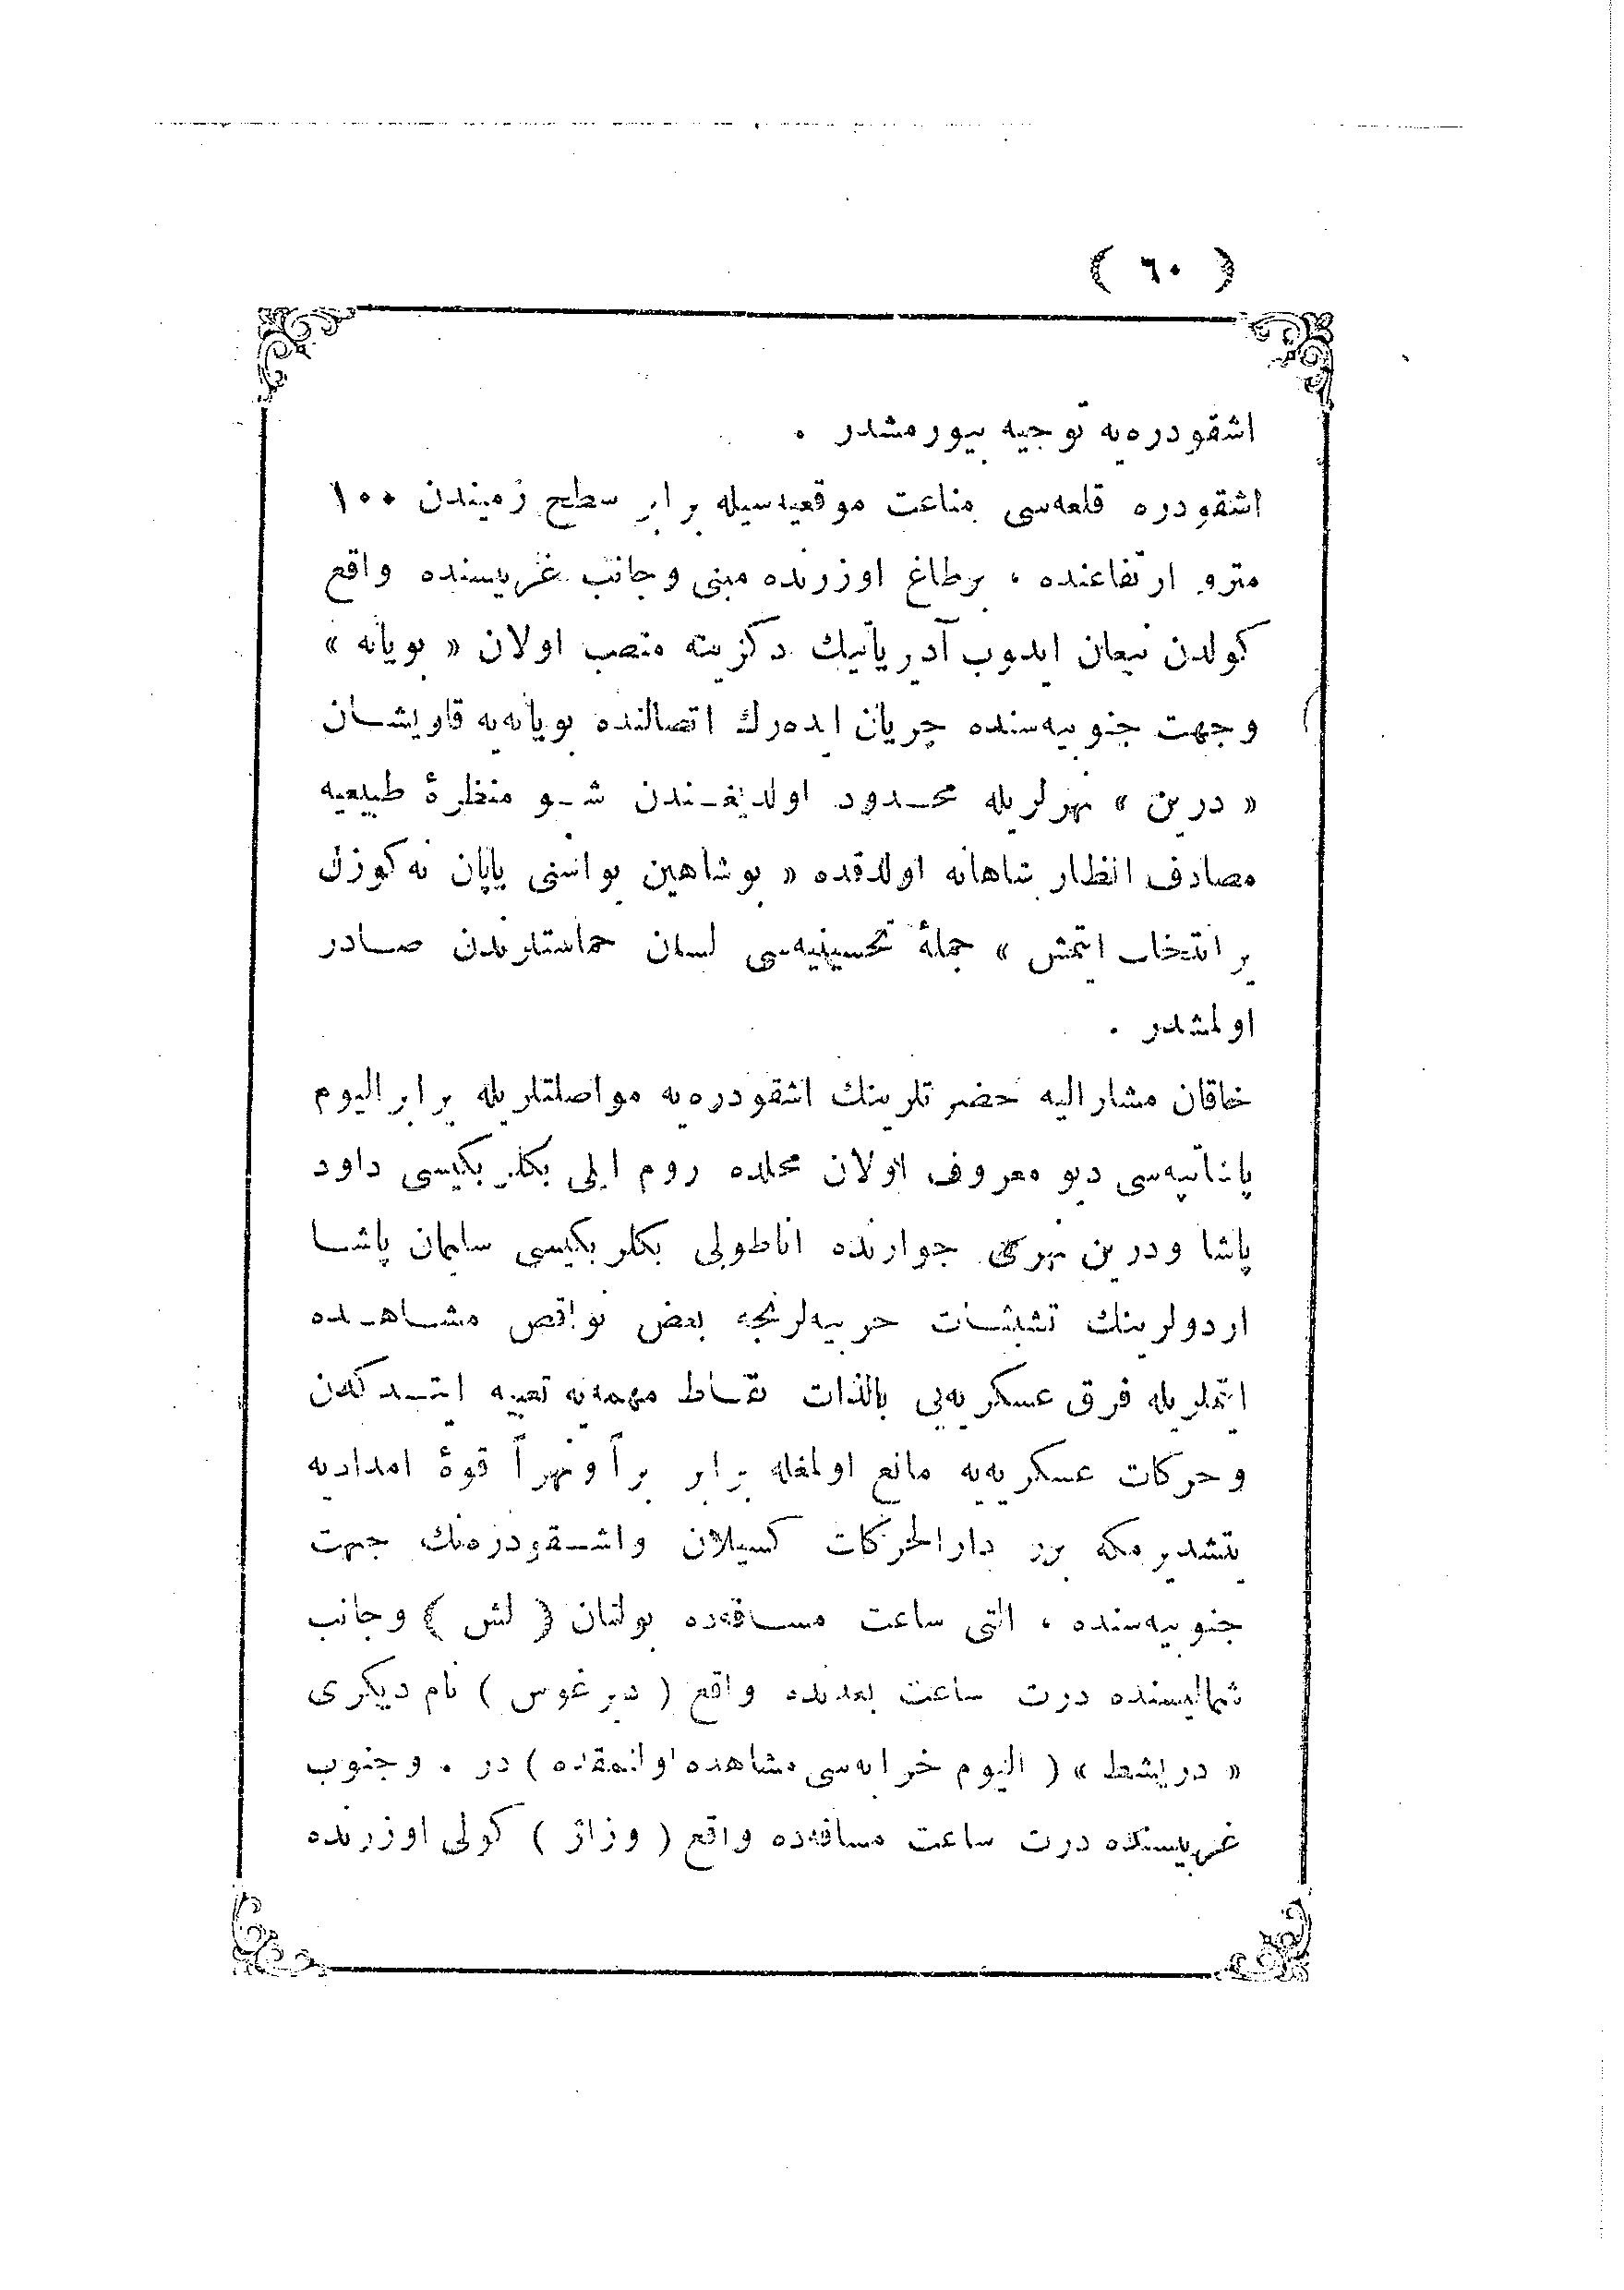 ( ٦٠ )
اشقودره‌یه توجیه بیورمشدر .
اشقودره قلعه‌سی مناعت موقعیه‌سیله برابر سطح زمیندن ١٠٠
مترو ارتفاعنده ، برطاغ اوزرنده مبنی وجانب غربیسنده واقع
کولدن نبعان ایدوب آدریاتیك دکزینه منصب اولان « بویانه »
وجهت جنوبیه‌سنده جریان ایده‌رك اتصالنده بویانه‌یه قاویشان
« درین » نهرلریله محدود اولدیغندن شو منظرهٔ طبیعیه
مصادف انظار شاهانه اولدقده « بوشاهین یواسنی یاپان نه کوزل
بر انتخاب ایتمش » جملهٔ تحسینیه‌سی لسان حماستلرندن صادر
اولمشدر .
خاقان مشارالیه حضرتلرینك اشقودره‌یه مواصلتلریله برابر الیوم
پاناتپه‌سی دیو معروف اولان محلده روم ایلی بکلربکیسی داود
پاشا ودرین نهری جوارنده اناطولی بکلربکیسی سلیمان پاشا
اردولرینك تشبثات حربیه‌لرنجه بعض نواقص مشاهده
ایتملریله فرق عسکریه‌یی بالذات نقاط مهمه‌یه تعبیه ایتدکدن
وحرکات عسکریه‌یه مانع اولمغله برابر براً ونهراً قوهٔ امدادیه
یتشدیرمکه برر دارالحرکات کسیلان واشقودره‌نك جهت
جنوبیه‌سنده ، التی ساعت مسافه‌ده بولنان ( لش ) وجانب
شمالیسنده درت ساعت بعدنده واقع ( دیرغوس ) نام دیکری
« دریشط » ( الیوم خرابه‌سی مشاهده اولنمقده ) در . وجنوب
غربیسنده درت ساعت مسافه‌ده واقع ( وزاتر ) کولی اوزرنده